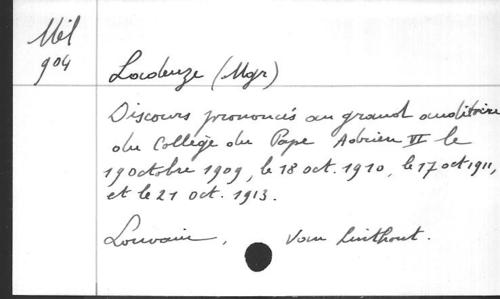 Mél
904
Ladeuze (Mgr)
Discours prononcés au grand auditoire
du Collège du Pape Adrien VI le
19 octobre 1909, le 18 oct. 1910, le 17 oct 1911,
et le 21 oct. 1913.
Louvain, Van Linthout.